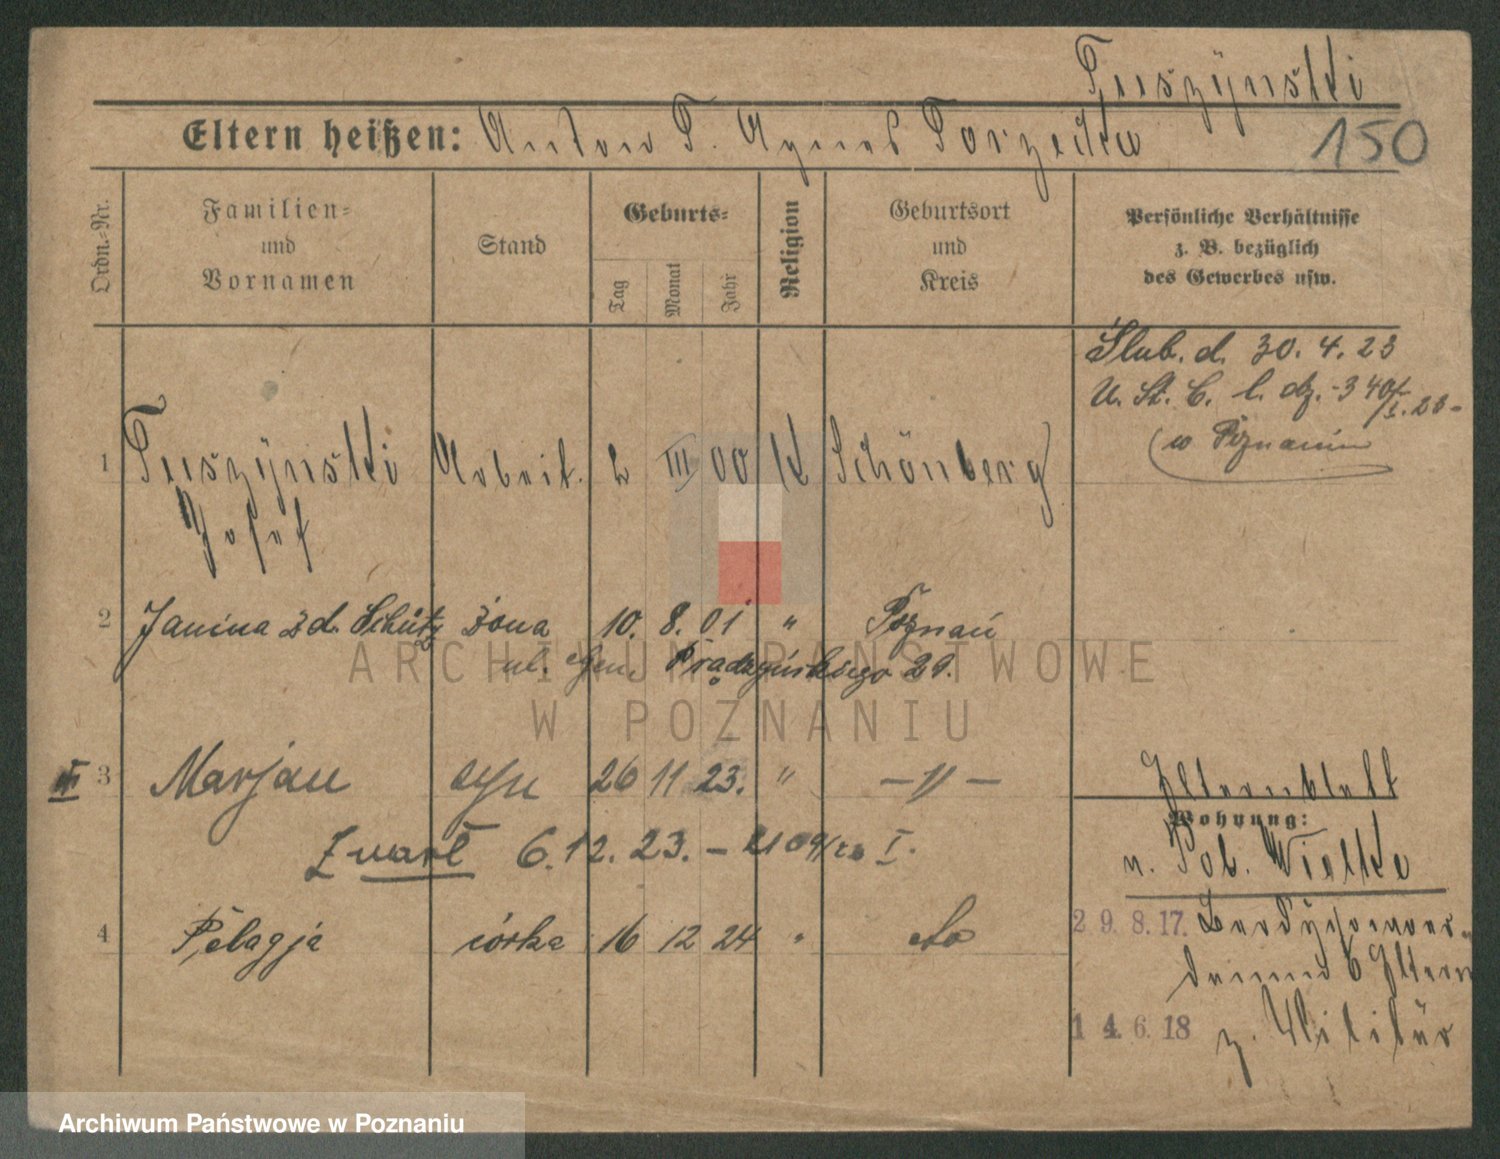 Tuszyński
Eltern heißen: Anton T. Agnes Torzecka
150
Ordn.-Nr.
Familien-
und
Vornamen
Stand
Geburts-
Tag
Monat
Jahr
Religion
Geburtsort
und
Kreis
Persönliche Verhältnisse
z. B. bezüglich
des Gewerbes usw.
Ślub. d. 30. 4. 23
U. St. C. l. dz. 340/I. 23-
(w Poznaniu
1 Tuszyński Arbeit. 2 III 00 K Schönberg
Josef
2 Janina zd. Schütz żona 10. 8. 01 " Poznań
ul. Gen. Prądzyńskiego 29.
3 Marjan syn 26 11 23. " —"—
Zmarł 6.12.23. —
Elternblatt
Wohnung:
n. Pob. Wielka
4 Pelagja córka 16 12 24 " do
29. 8. 17. 6 Eltern
14. 6. 18 z. Militär
ARCHIWUM PAŃSTWOWE
W POZNANIU
Archiwum Państwowe w Poznaniu